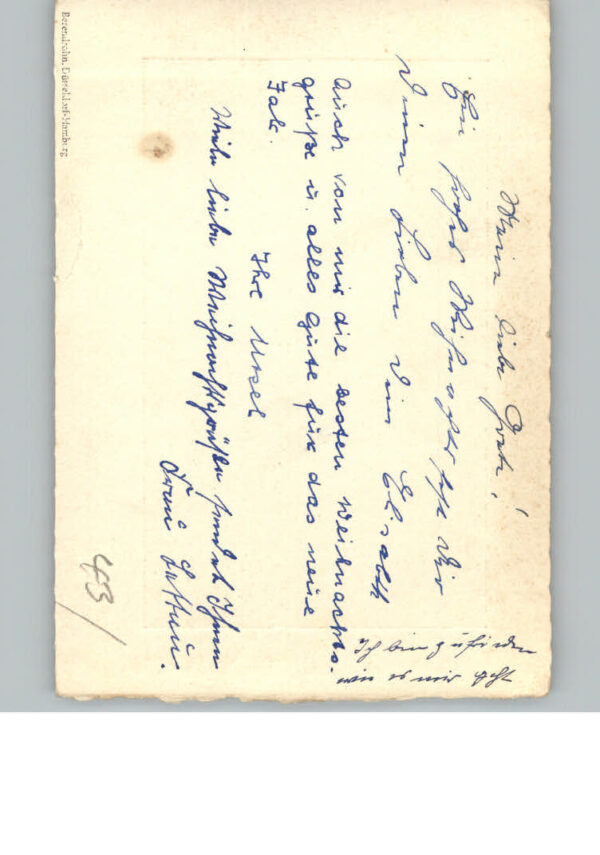 Meine liebe Grete!
Ein frohes Weihnachtsfest Dir
Deinen Lieben Deine Elisabeth
Auch von mir die besten Weihnachts-
grüße u. alles Gute für das neue
Jahr.
Ihre Ursel
Viele liebe Weihnachtsgrüße sendet Ihnen
Ich bin zufrieden
wie es mir geht
43
Berendsohn, Düsseldorf-Hamburg